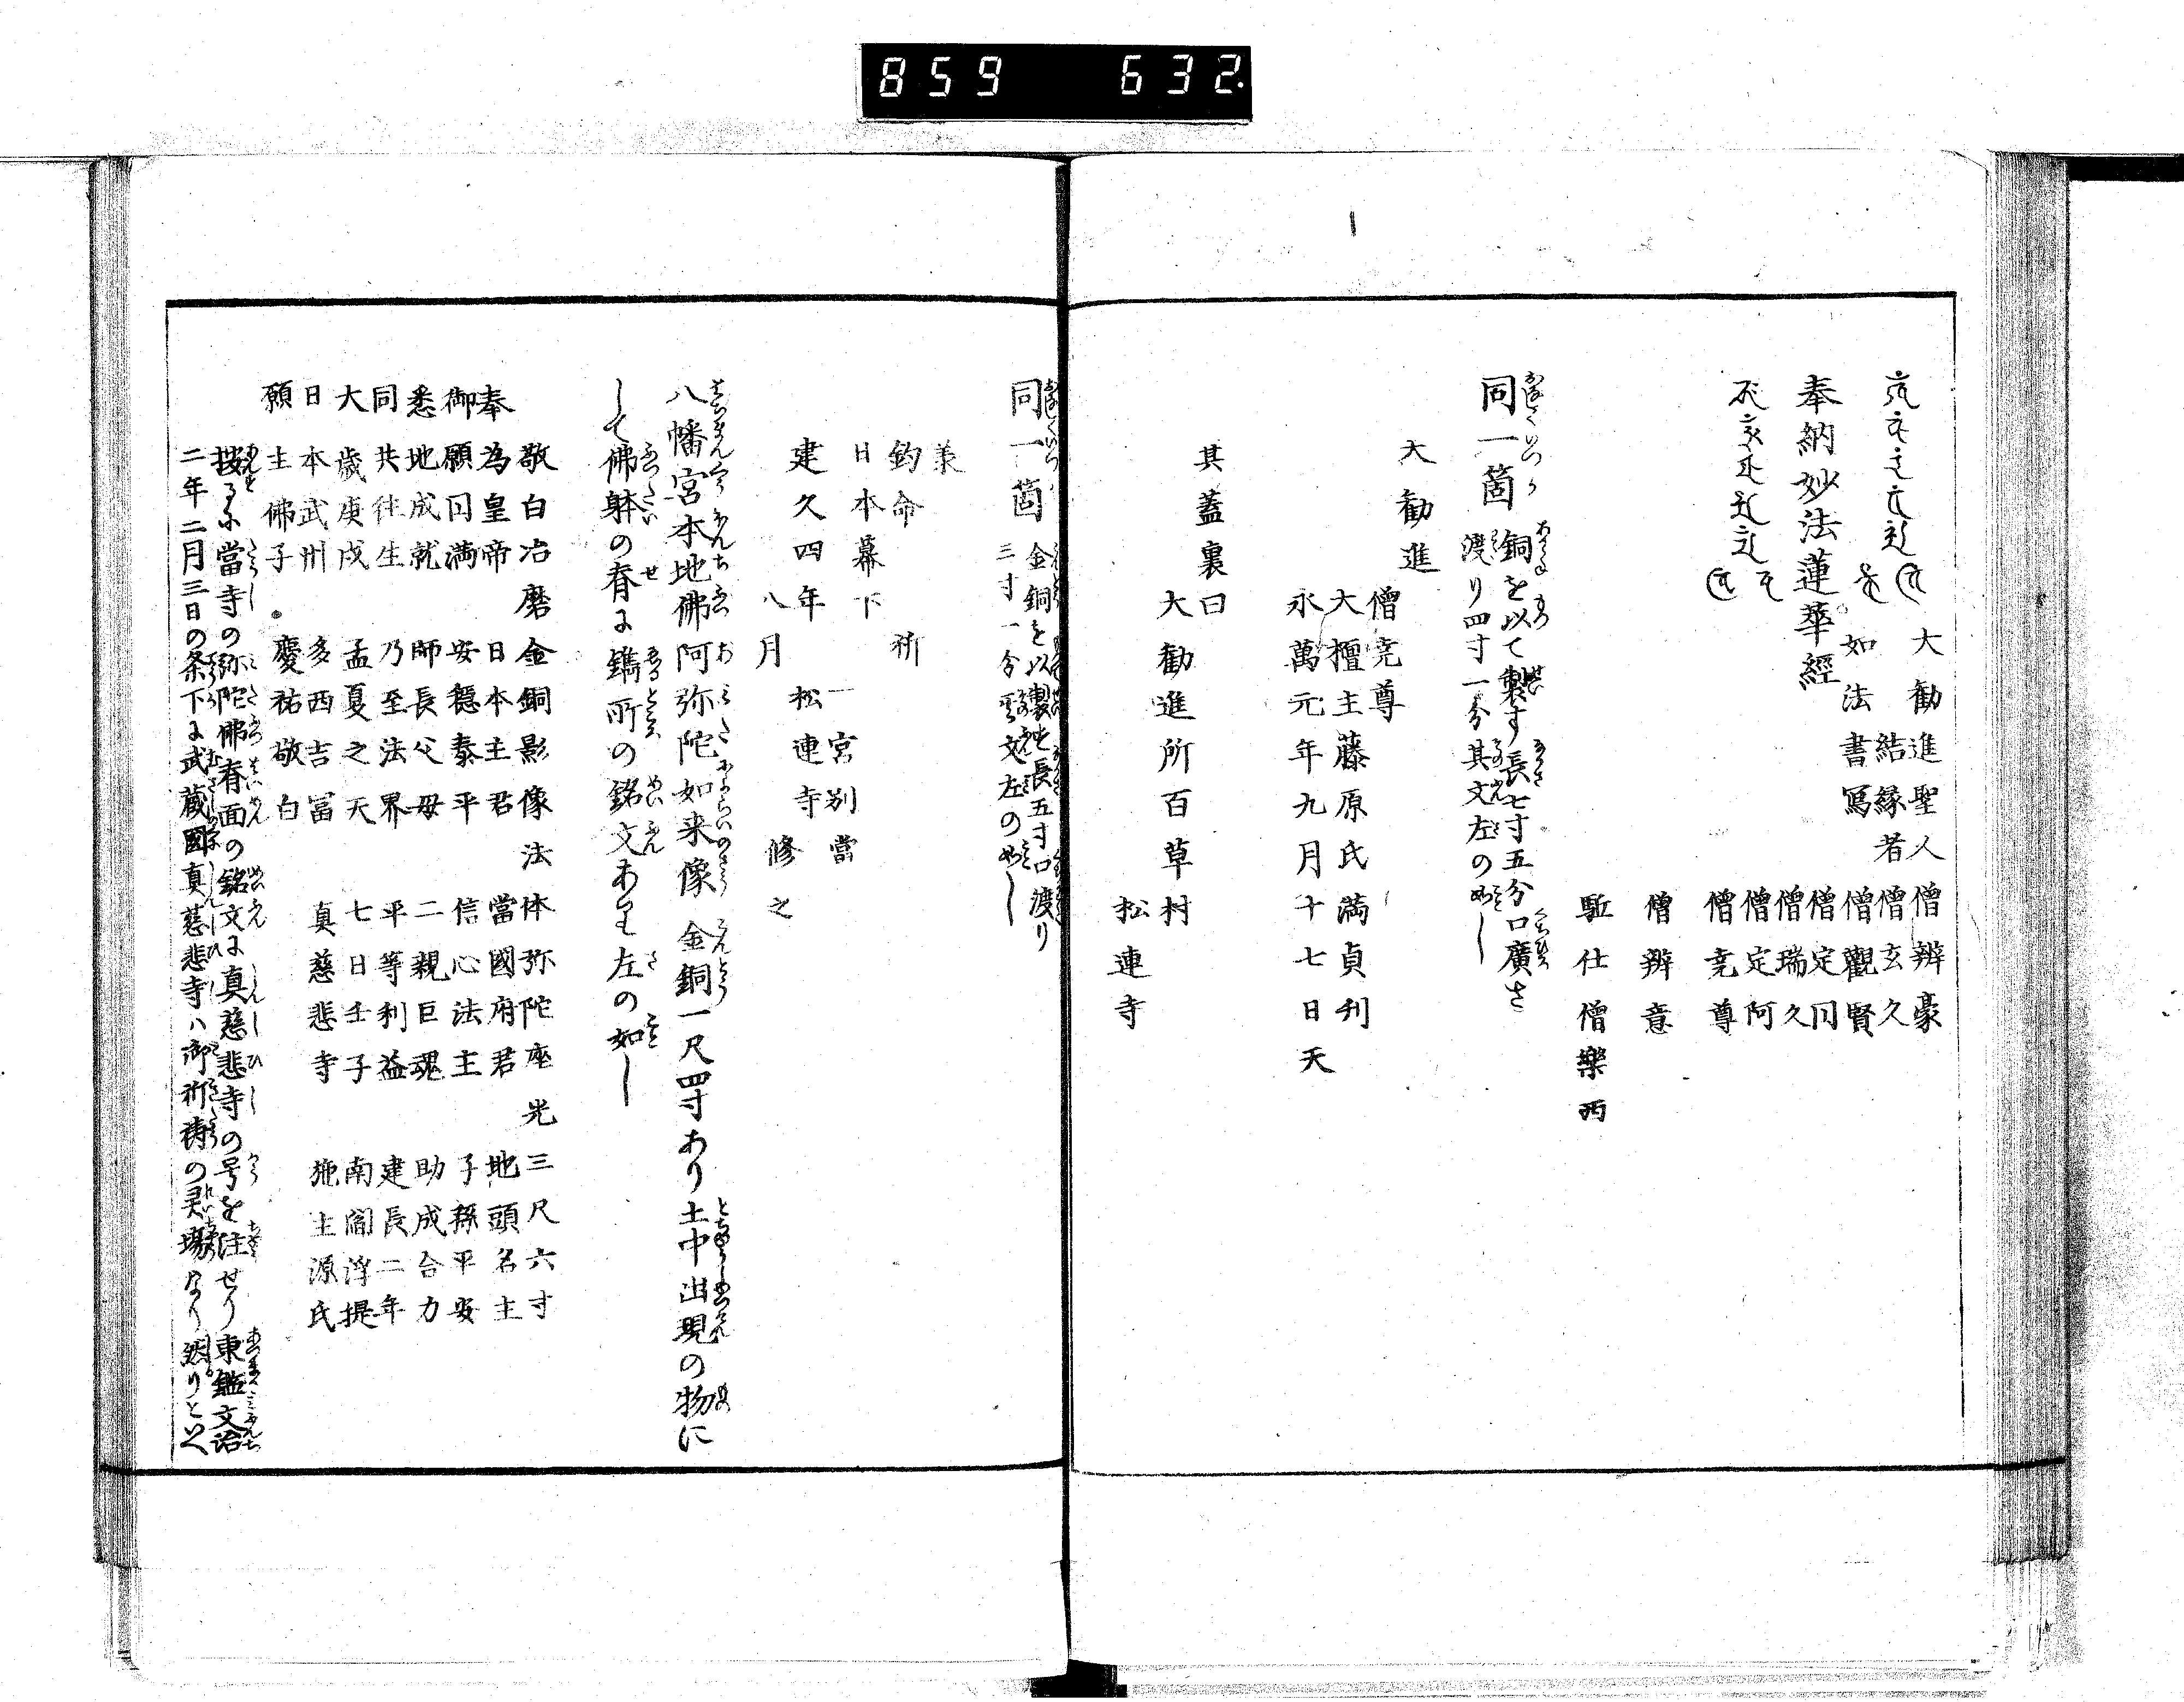 859 632
大勧進聖人 僧辨豪
結縁者 僧玄久
如法書寫 僧觀賢
奉納妙法蓮華經
僧定円
僧瑞久
僧定阿
僧尭尊
僧辨意
駈仕僧樂西
同一箇 銅を以て製す長七寸五分口廣さ
渡り四寸一分其文左の如し
大勧進
僧尭尊
大檀主藤原氏満貞利
永萬元年九月十七日天
其蓋裏曰
大勧進所百草村
松連寺
同一箇 金銅を以製せ長五寸口渡り
三寸一分文左の如し
兼
鈞命 祈
日本幕下
一宮別當
建久四年 松連寺
八月 修之
八幡宮本地佛阿弥陀如来像 金銅一尺四寸あり土中出現の物に
して佛躰の脊に鐫所の銘文あり左の如し
敬白冶磨金銅影像法体弥陀座光三尺六寸
奉為皇帝 日本主君 當國府君 地頭名主
御願円満 安穏泰平 信心法主 子孫平安
悉地成就 師長父母 二親巨魂 助成合力
同共往生 乃至法界 平等利益 建長二年
大歳庚戌 孟夏之天 七日壬子 南閻浮提
日本武州 多西吉冨 真慈悲寺 施主源氏
願主佛子 慶祐敬白
按るに當寺の弥陀佛脊面の銘文に真慈悲寺の号を注せり東鑑文治
二年二月三日の条下に武蔵國真慈悲寺ハ御祈祷の灵場なり然りといへ